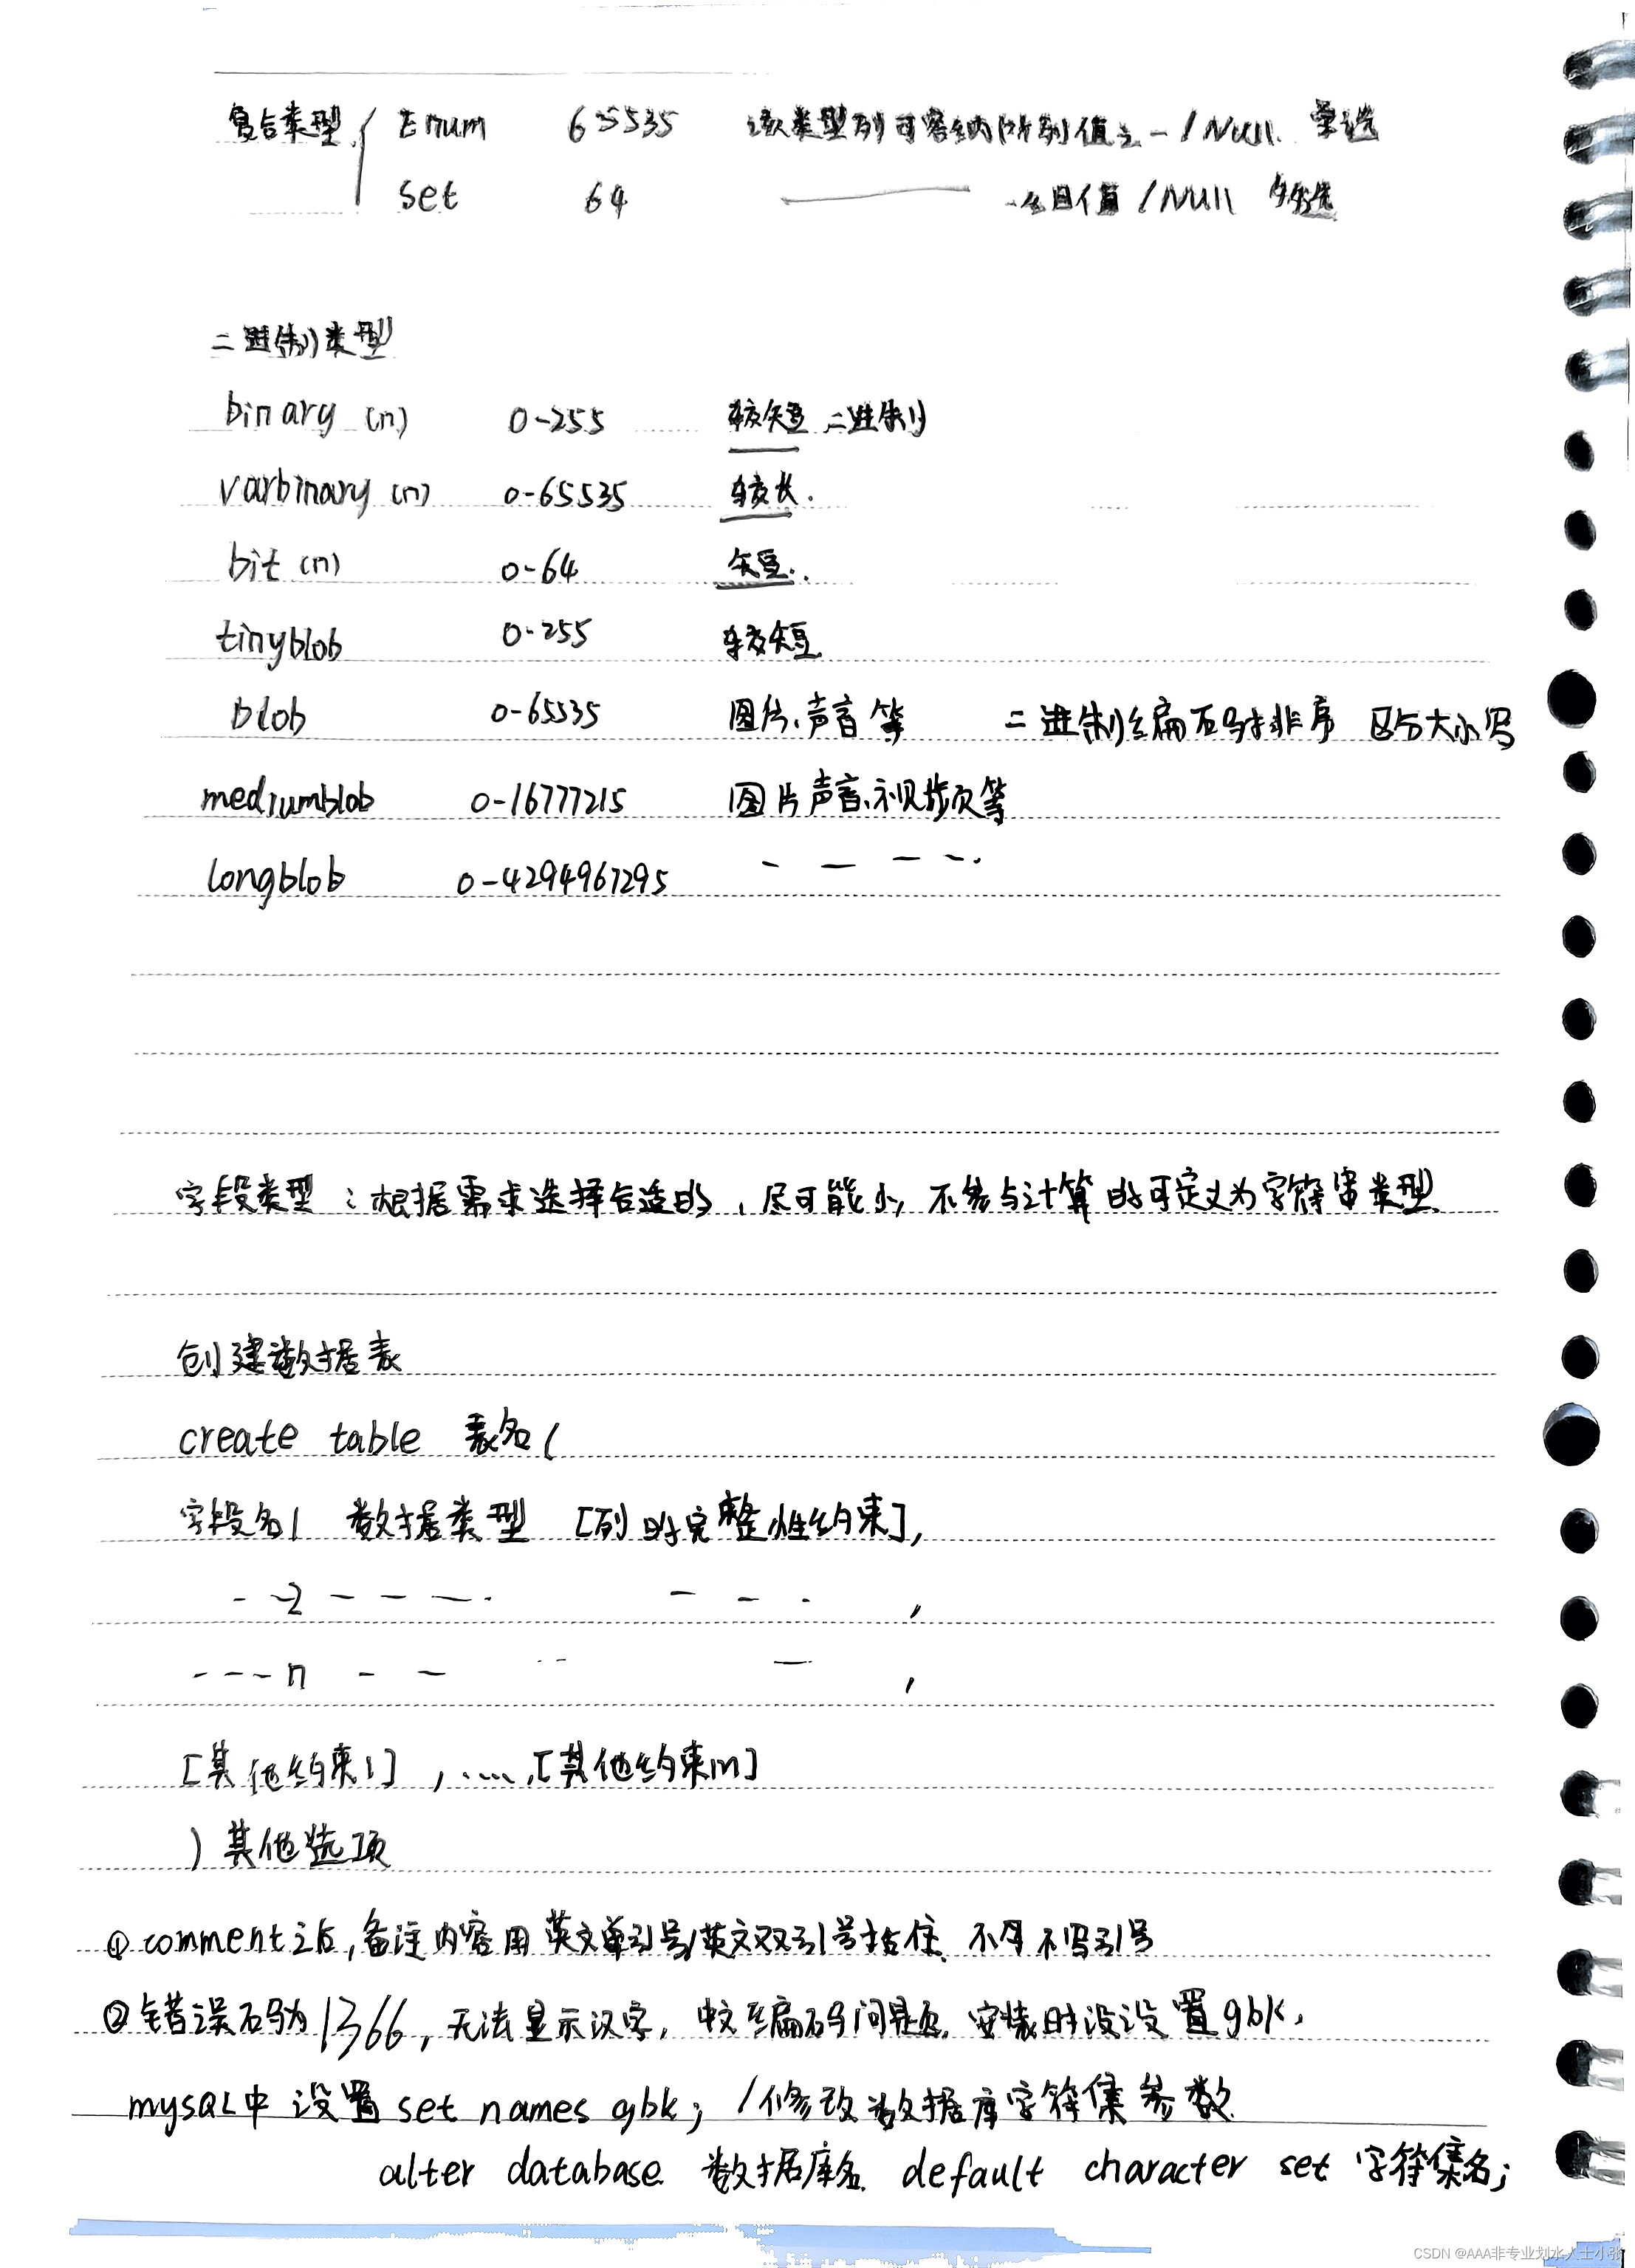 复合类型 { Enum 65535 该类型列可容纳所列值之一/Null. 单选
set 64 ——— 一组值/Null 多选
二进制类型
binary (n) 0-255 较短二进制
varbinary (n) 0-65535 较长.
bit (n) 0-64 短..
tinyblob 0-255 较短.
blob 0-65535 图片、声音等 二进制编码排序 区分大小写
mediumblob 0-16777215 图片声音、视频等
longblob 0-4294967295 - - - -.
字段类型：根据需求选择合适的，尽可能小，不参与计算的可定义为字符串类型.
创建数据表
create table 表名(
字段名1 数据类型 [列的完整性约束],
- -2 - - -. - - . ,
- - - n - - -- - ,
[其他约束1] ,....,[其他约束m]
) 其他选项
① comment之后,备注内容用英文单引号/英文双引号括住. 不可不写引号
② 错误码为1366,无法显示汉字, 中文编码问题, 安装时没设置gbk,
mysql中 设置 set names gbk; /修改数据库字符集参数.
alter database 数据库名 default character set 字符集名;
CSDN @AAA非专业划水人士小张